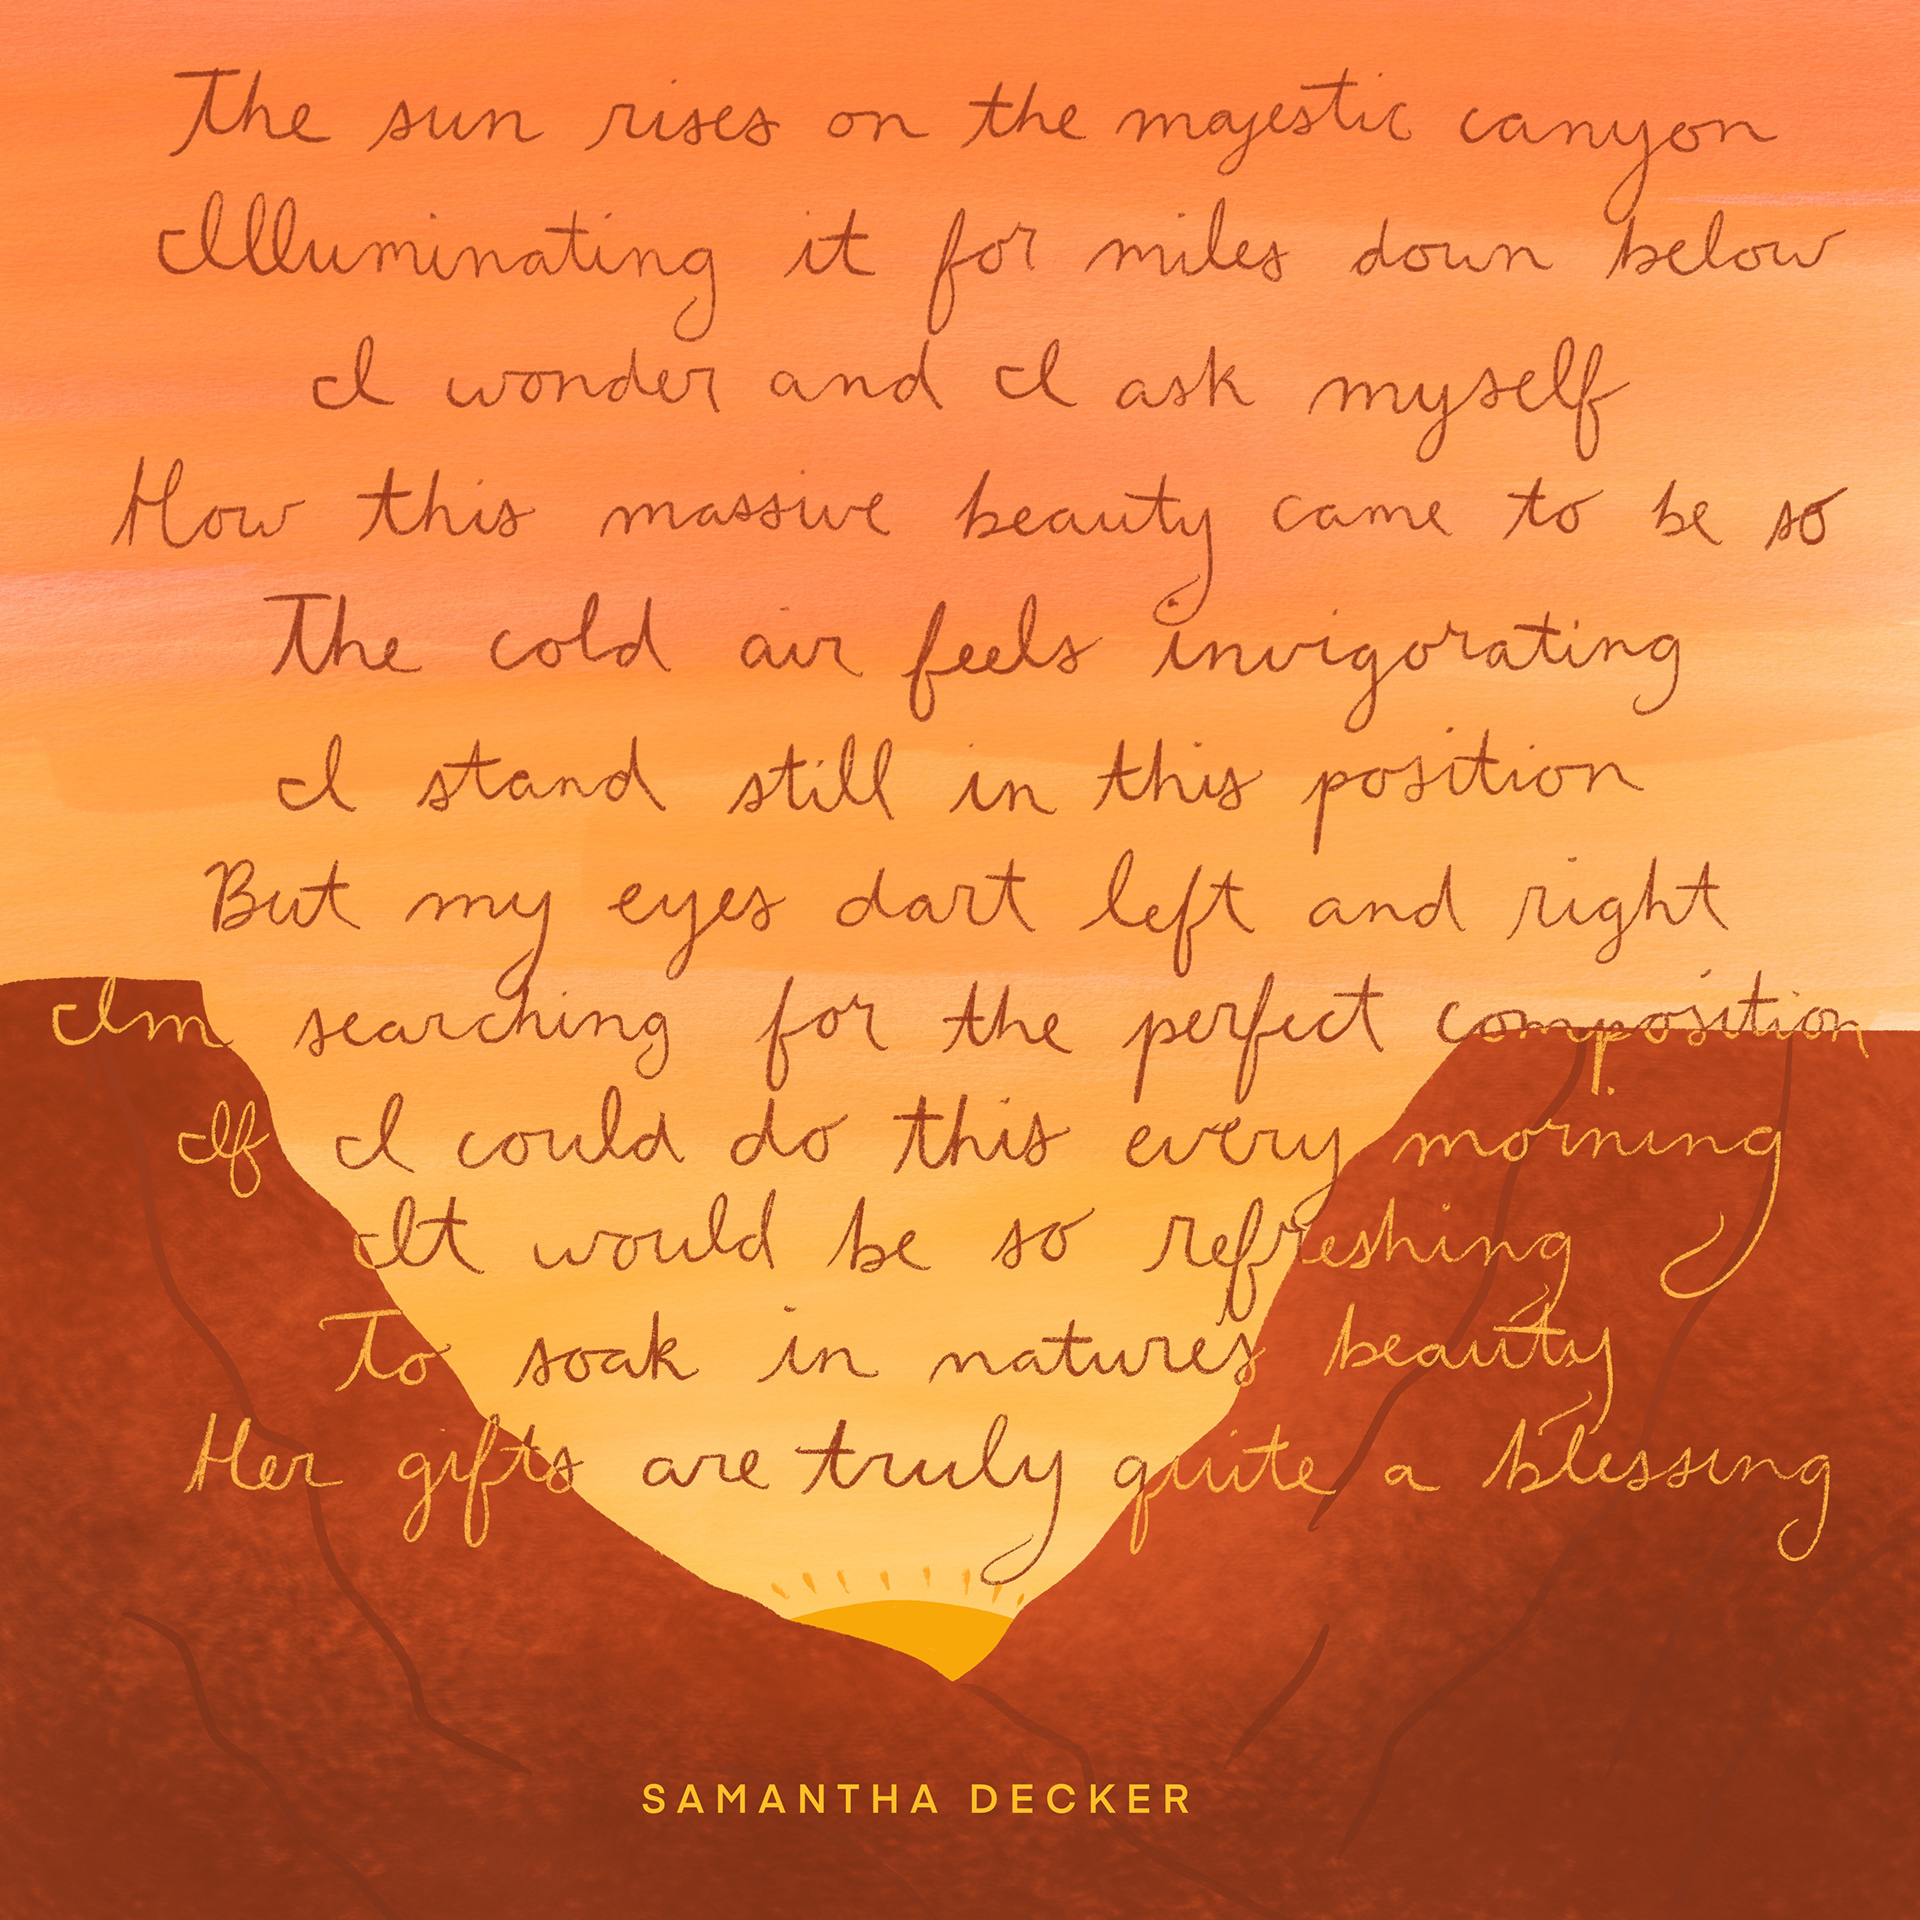 The sun rises on the majestic canyon
Illuminating it for miles down below
I wonder and I ask myself
How this massive beauty came to be so
The cold air feels invigorating
I stand still in this position
But my eyes dart left and right
Im searching for the perfect composition
If I could do this every morning
It would be so refreshing
To soak in nature's beauty
Her gifts are truly quite a blessing
SAMANTHA DECKER